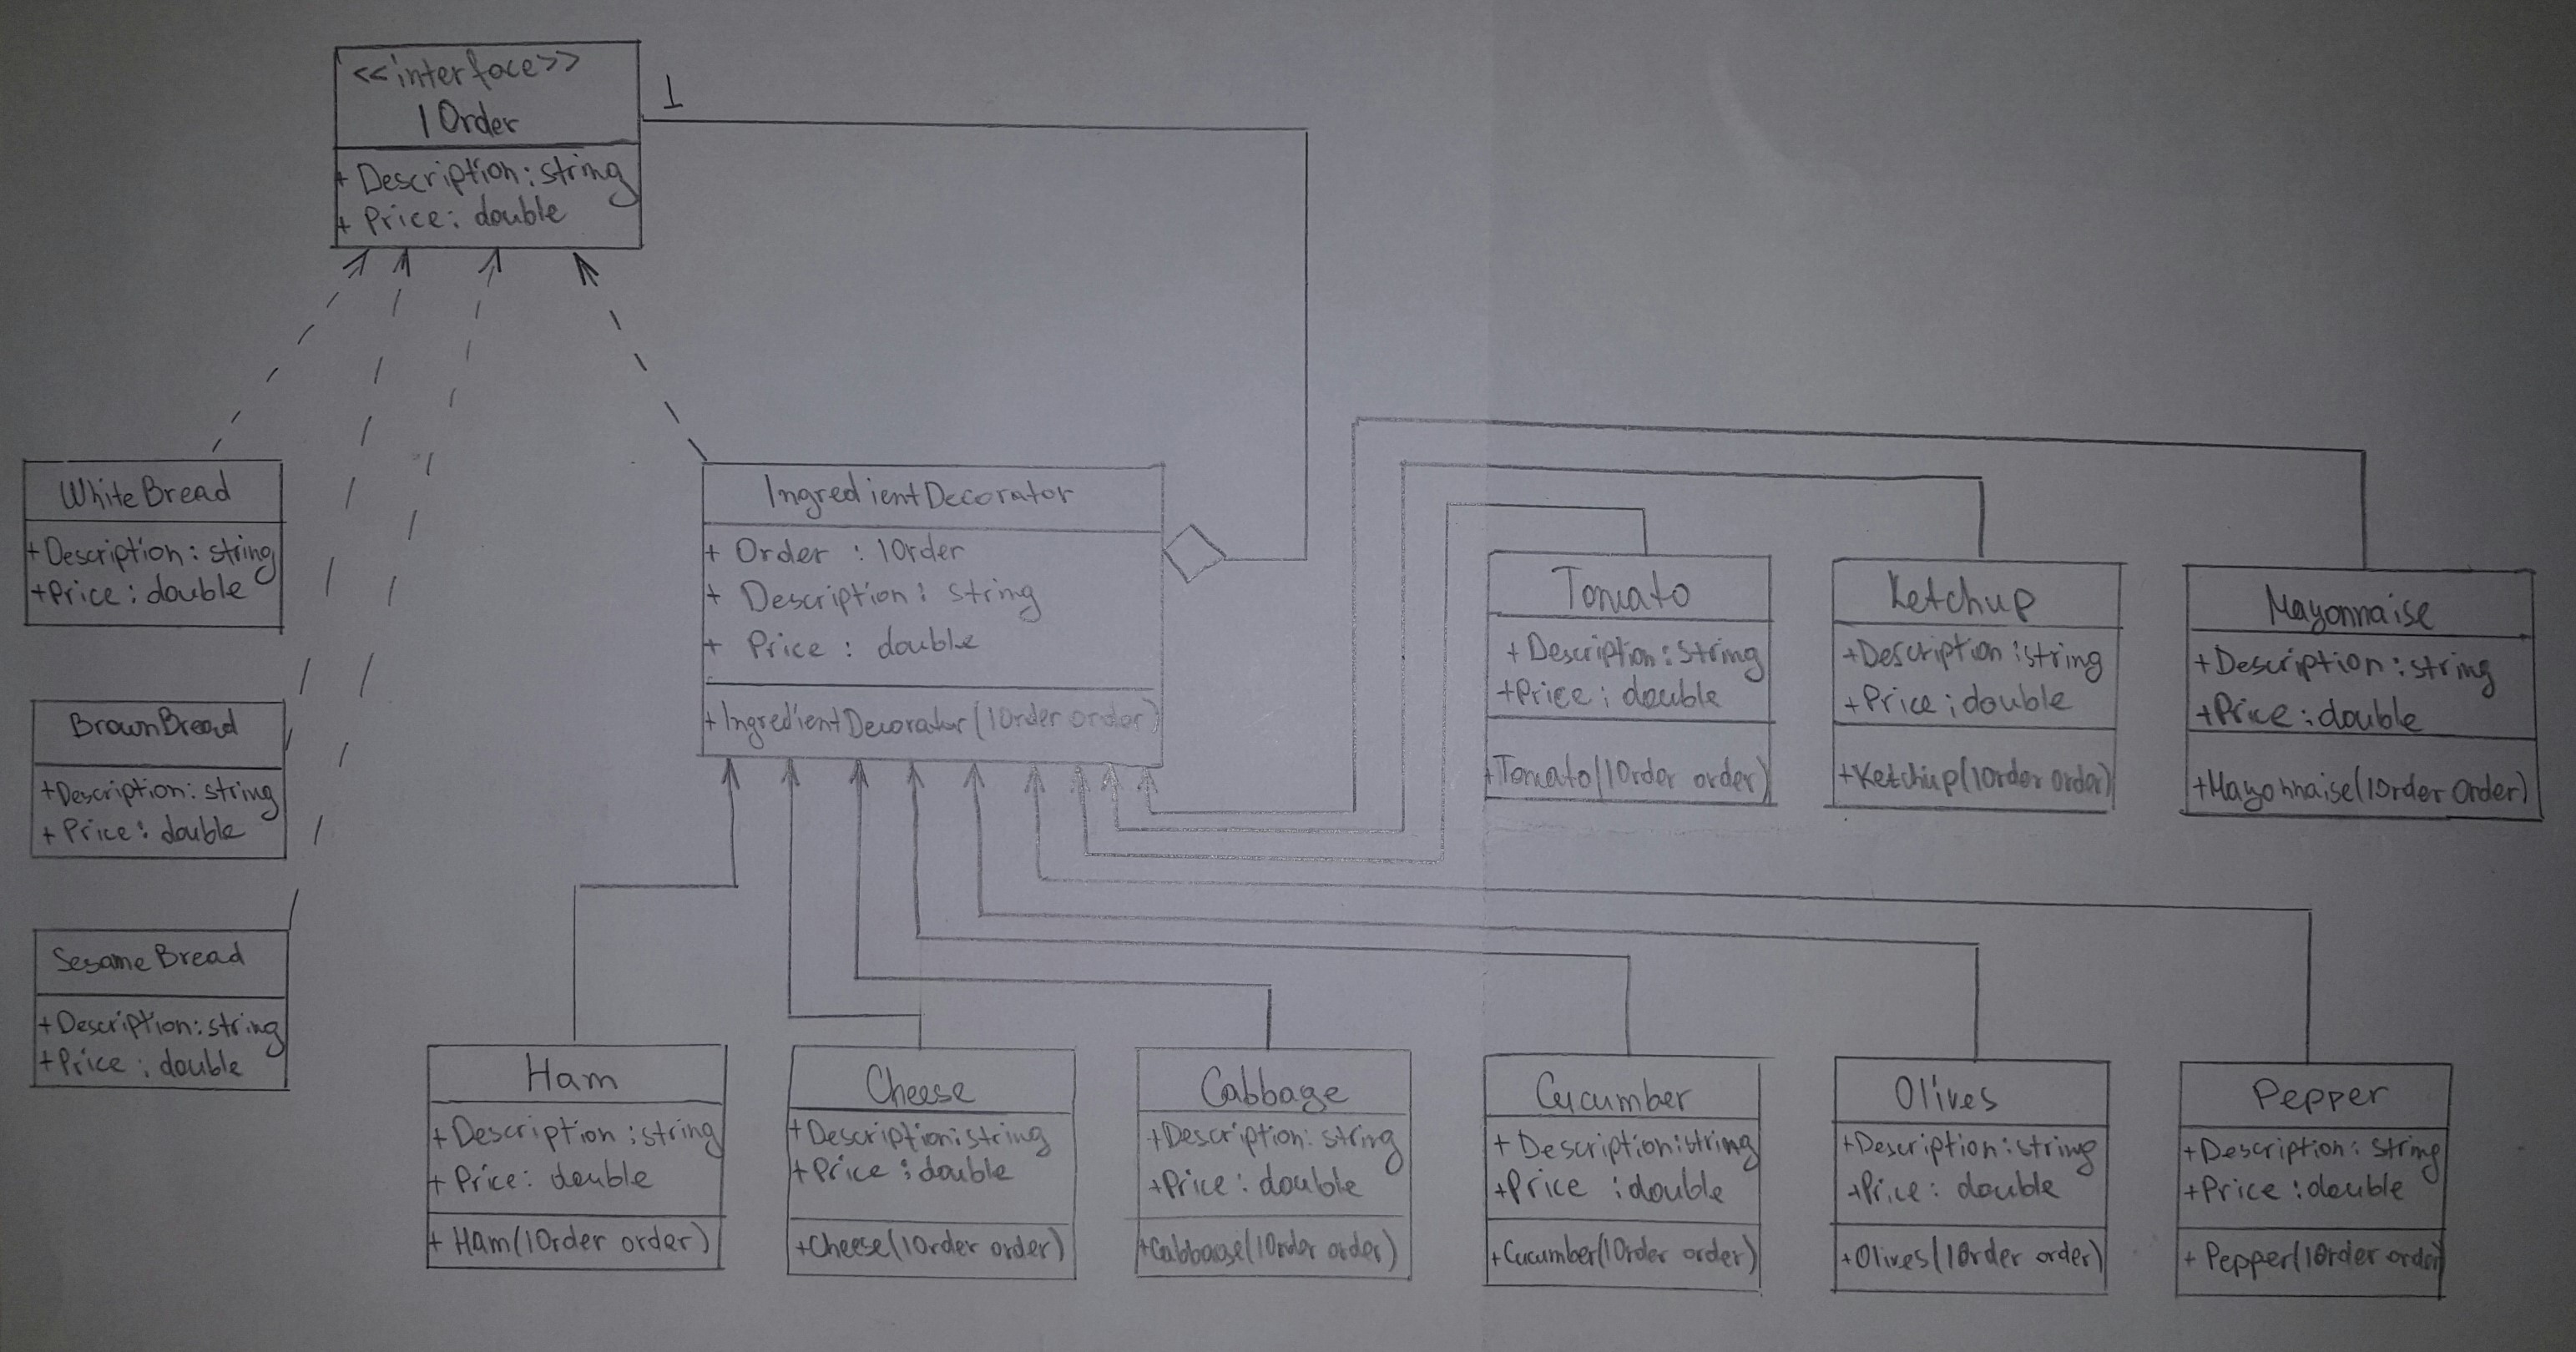 <<interface>>
IOrder
1
+ Description: string
+ Price: double
WhiteBread
+Description: string
+Price: double
BrownBread
+Description: string
+ Price: double
SesameBread
+Description: string
+Price: double
IngredientDecorator
+ Order : IOrder
+ Description: string
+ Price : double
+IngredientDecorator(IOrder order)
Tomato
+Description: string
+Price: double
+Tomato(IOrder order)
Ketchup
+Description: string
+Price: double
+Ketchup(IOrder order)
Mayonnaise
+Description: string
+Price: double
+Mayonnaise(IOrder order)
Ham
+ Description: string
+ Price: double
+ Ham(IOrder order)
Cheese
+Description: string
+Price: double
+Cheese(IOrder order)
Cabbage
+Description: string
+Price: double
+Cabbage(IOrder order)
Cucumber
+ Description: string
+Price : double
+Cucumber(IOrder order)
Olives
+Description: string
+Price: double
+Olives(IOrder order)
Pepper
+Description: string
+Price: double
+ Pepper(IOrder order)